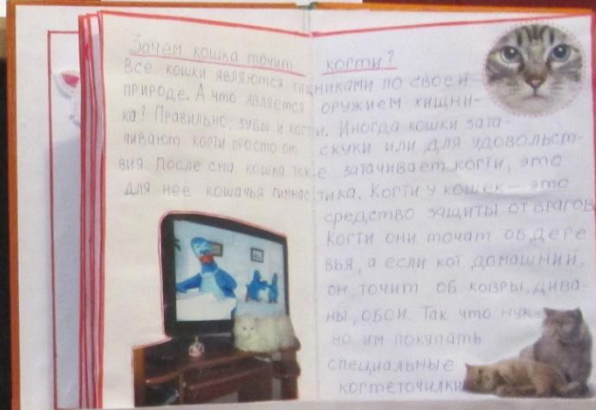 Зачем кошка точит когти?
Все кошки являются хищниками по своей
природе. А что является оружием хищни-
ка? Правильно, зубы и когти. Иногда кошки зата-
чивают когти просто от скуки или для удовольст-
вия. После сна кошка тоже затачивает когти, это
для неё кошачья гимнастика. Когти у кошек – это
средство защиты от врагов
Когти они точат об дере
вья, а если кот домашний,
он точит об ковры, дива-
ны, обои. Так что нуж-
но им покупать
специальные
когтеточилки